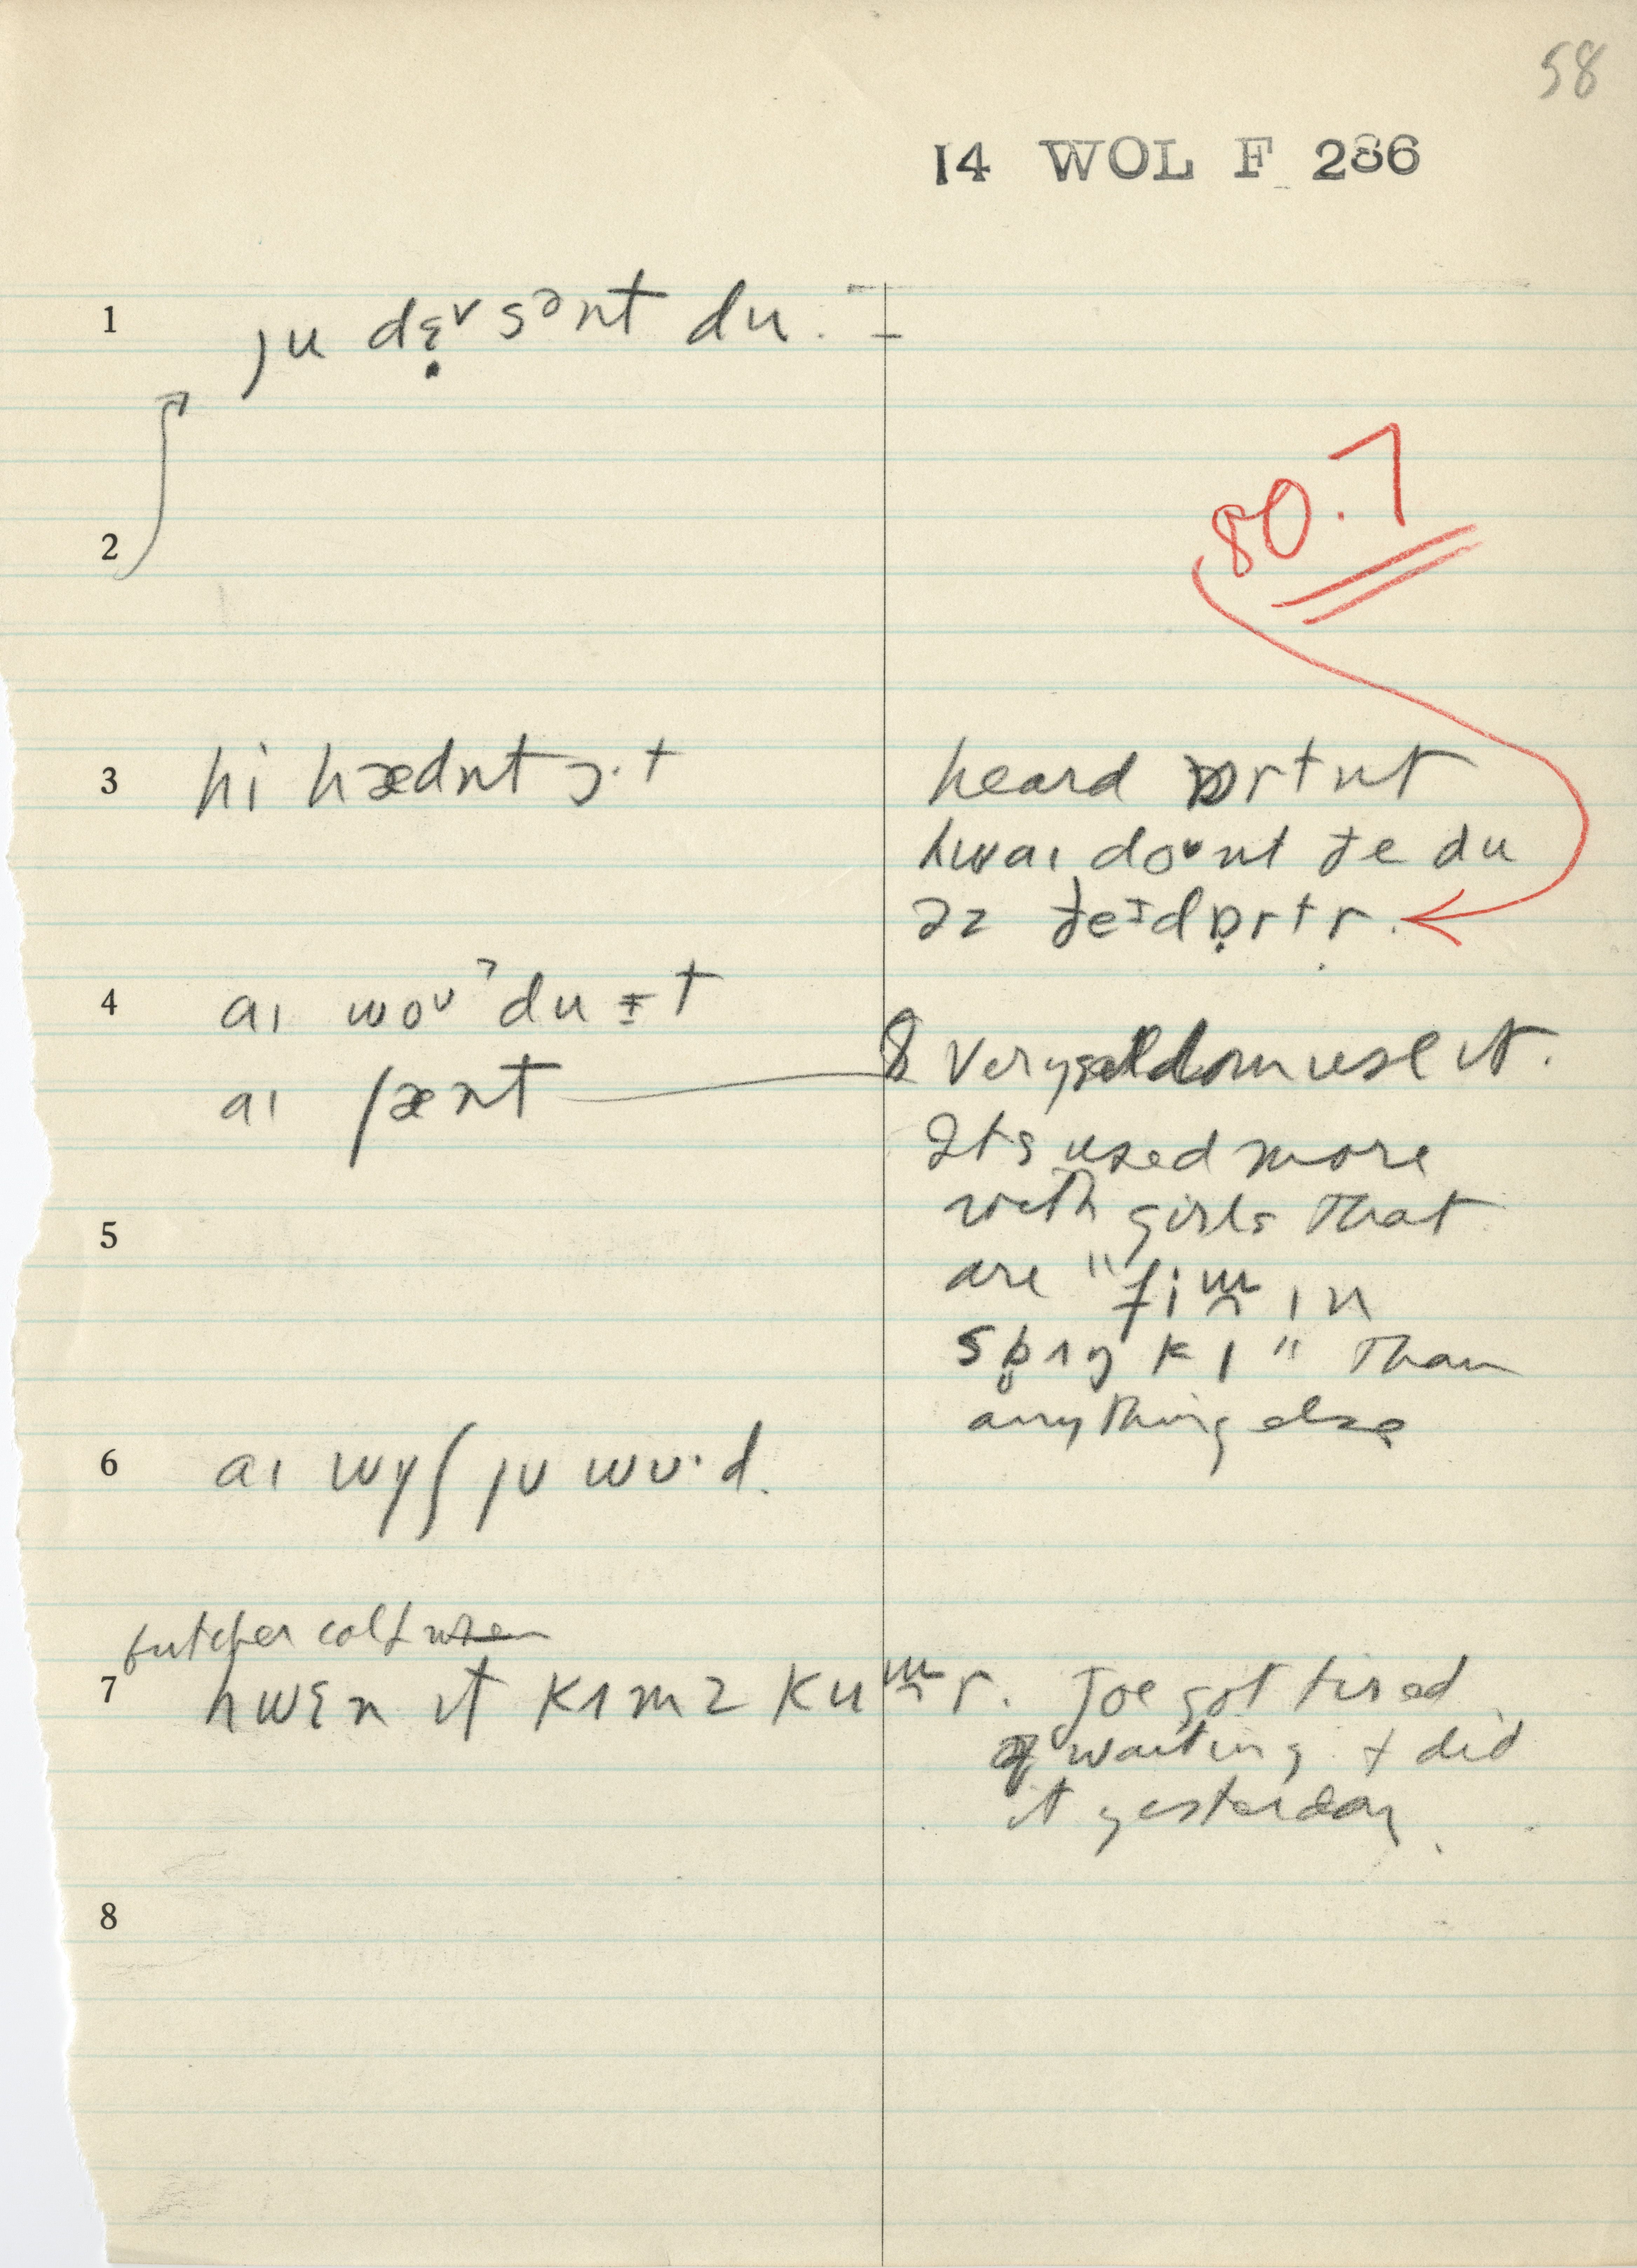 58
14 WOL F 286
1 ju dɛ̣ᵛsᵊnt du.
80.7
2
3 hi hædnt ɔ·t
heard ɒrtnt
hwaɪ doᴜnt ðe du
əz ðeɪdɒ̣rtr.
4 aɪ woᴜˀdu ɨt
aɪ ʃænt
Very seldom use it.
Its used more
5 with girls that
are "fim ɪn
spɪŋkɪ" than
anything else
6 aɪ wɪʃ jᴜ wᴜ·d.
butcher calf when
7 hwɛn ɪt kʌmz kumr. Joe got tired
of waiting & did
it yesterday.
8